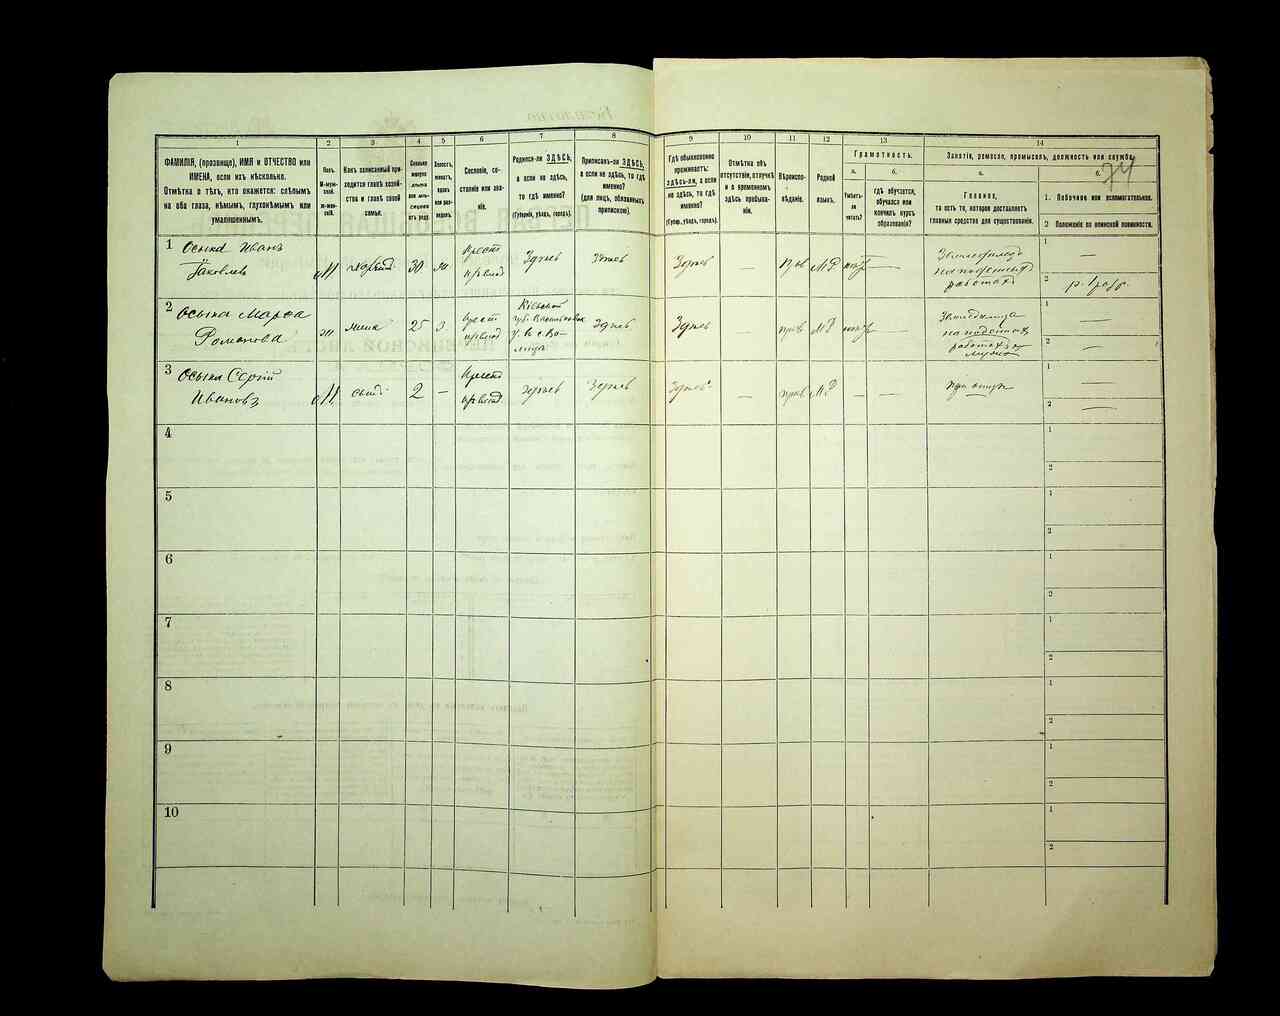 74
1
ФАМИЛІЯ, (прозвище), ИМЯ и ОТЧЕСТВО или
ИМЕНА, если ихъ нѣсколько.
Отмѣтка о тѣхъ, кто окажется: слѣпымъ
на оба глаза, нѣмымъ, глухонѣмымъ или
умалишеннымъ.
2
Полъ.
М-муж-
ской.
Ж-жен-
скій.
3
Какъ записанный при-
ходится главѣ хозяй-
ства и главѣ своей
семьи.
4
Сколько
минуло
лѣтъ
или мѣ-
сяцевъ
отъ роду.
5
Холостъ,
женатъ,
вдовъ
или раз-
веденъ.
6
Сословіе, со-
стояніе или зва-
ніе.
7
Родился-ли ЗДѢСЬ,
а если не здѣсь,
то гдѣ именно?
(Губернія, уѣздъ, городъ).
8
Приписанъ-ли ЗДѢСЬ,
а если не здѣсь, то гдѣ
именно?
(для лицъ, обязанныхъ
припискою).
9
Гдѣ обыкновенно
проживаетъ:
здѣсь-ли, а если
не здѣсь, то гдѣ
именно?
(Губерн., уѣздъ, городъ).
10
Отмѣтка объ
отсутствіи, отлучкѣ
и о временномъ
здѣсь пребыва-
ніи.
11
Вѣроиспо-
вѣданіе.
12
Родной
языкъ.
13
Грамотность.
а.
Умѣетъ-
ли
читать?
б.
гдѣ обучается,
обучался или
кончилъ курсъ
образованія?
14
Занятіе, ремесло, промыселъ, должность или служба.
а.
Главное,
то есть то, которое доставляетъ
главныя средства для существованія.
б.
1. Побочное или вспомогательное.
2 Положеніе по воинской повинности.
1 Осыка Иванъ
Яковлев
М
30
жн
Крест
Здѣсь
Здѣсь
Здѣсь
—
Прав
МР
—
работахъ
1 —
2
2 Осыка Марфа
Романова
ж
жена
25
з
Крест
Кіевской
губ. Васильков
у.
Здѣсь
Здѣсь
—
прав
МР
—
на подѣных
работах
1 —
2 —
3 Осыка Сергій
Иванов
М
сынъ
2
—
Крест
Здѣсь
Здѣсь
Здѣсь
—
прав
МР
—
—
при отцѣ
1 —
2 —
4
1
2
5
1
2
6
1
2
7
1
2
8
1
2
9
1
2
10
1
2